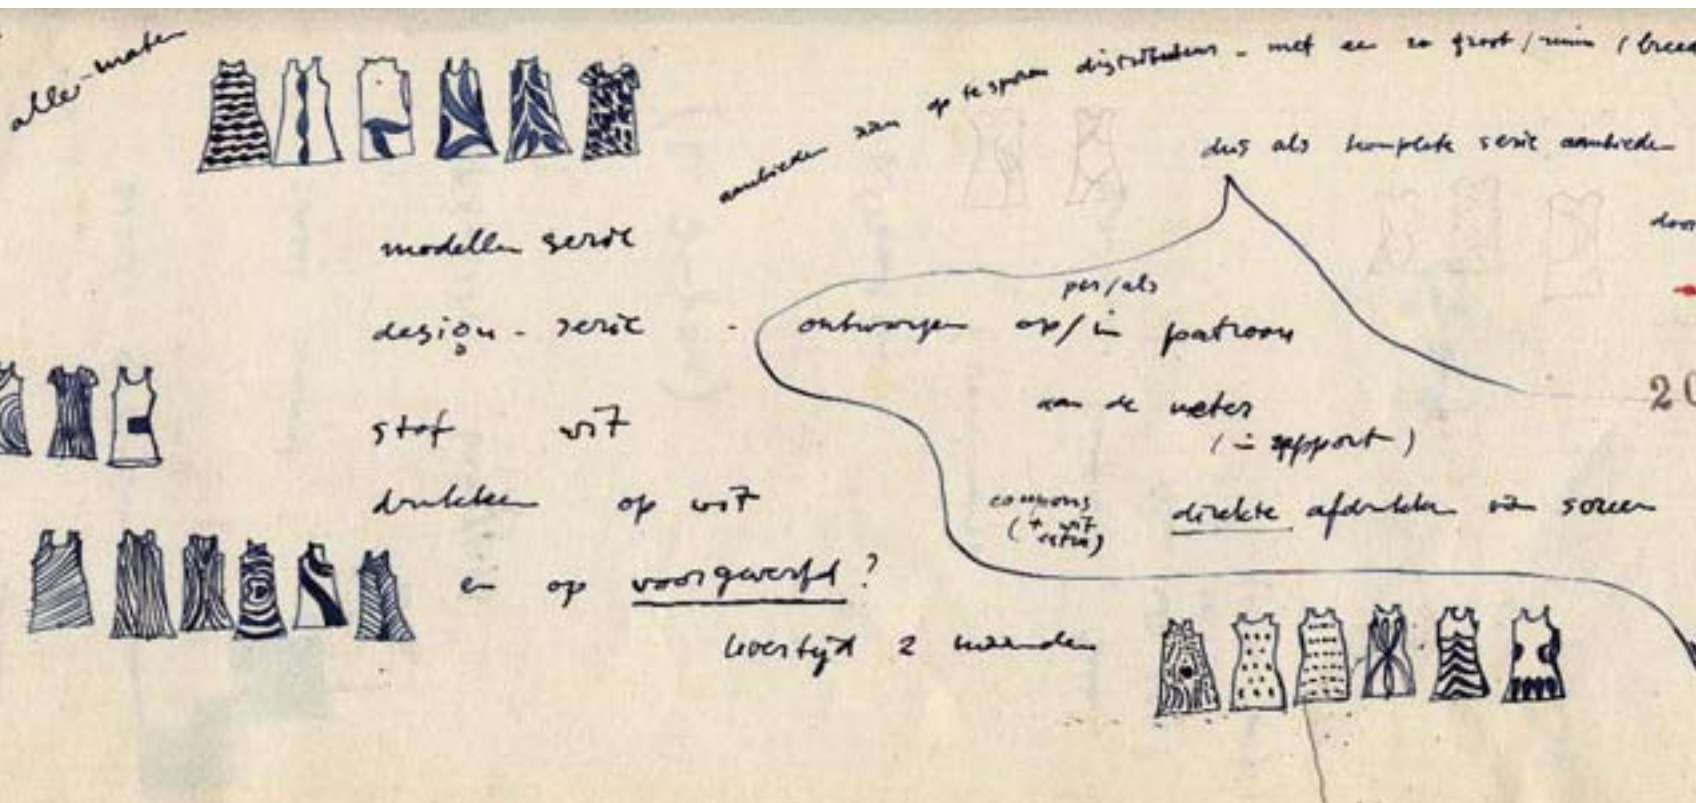 alle maten
aanbieden aan op te sporen distributeurs - met een zo groot / ruim (breed
dus als komplete serie aanbieden
door
modellen serie
per/als
design - serie - ontworpen op/in patroon
20
aan de meter
stof wit
(= rapport)
drukken op wit
coupons
(+ wit
extra)
direkte afdrukken van screen
en op voorgeverfd?
levertijd 2 maanden